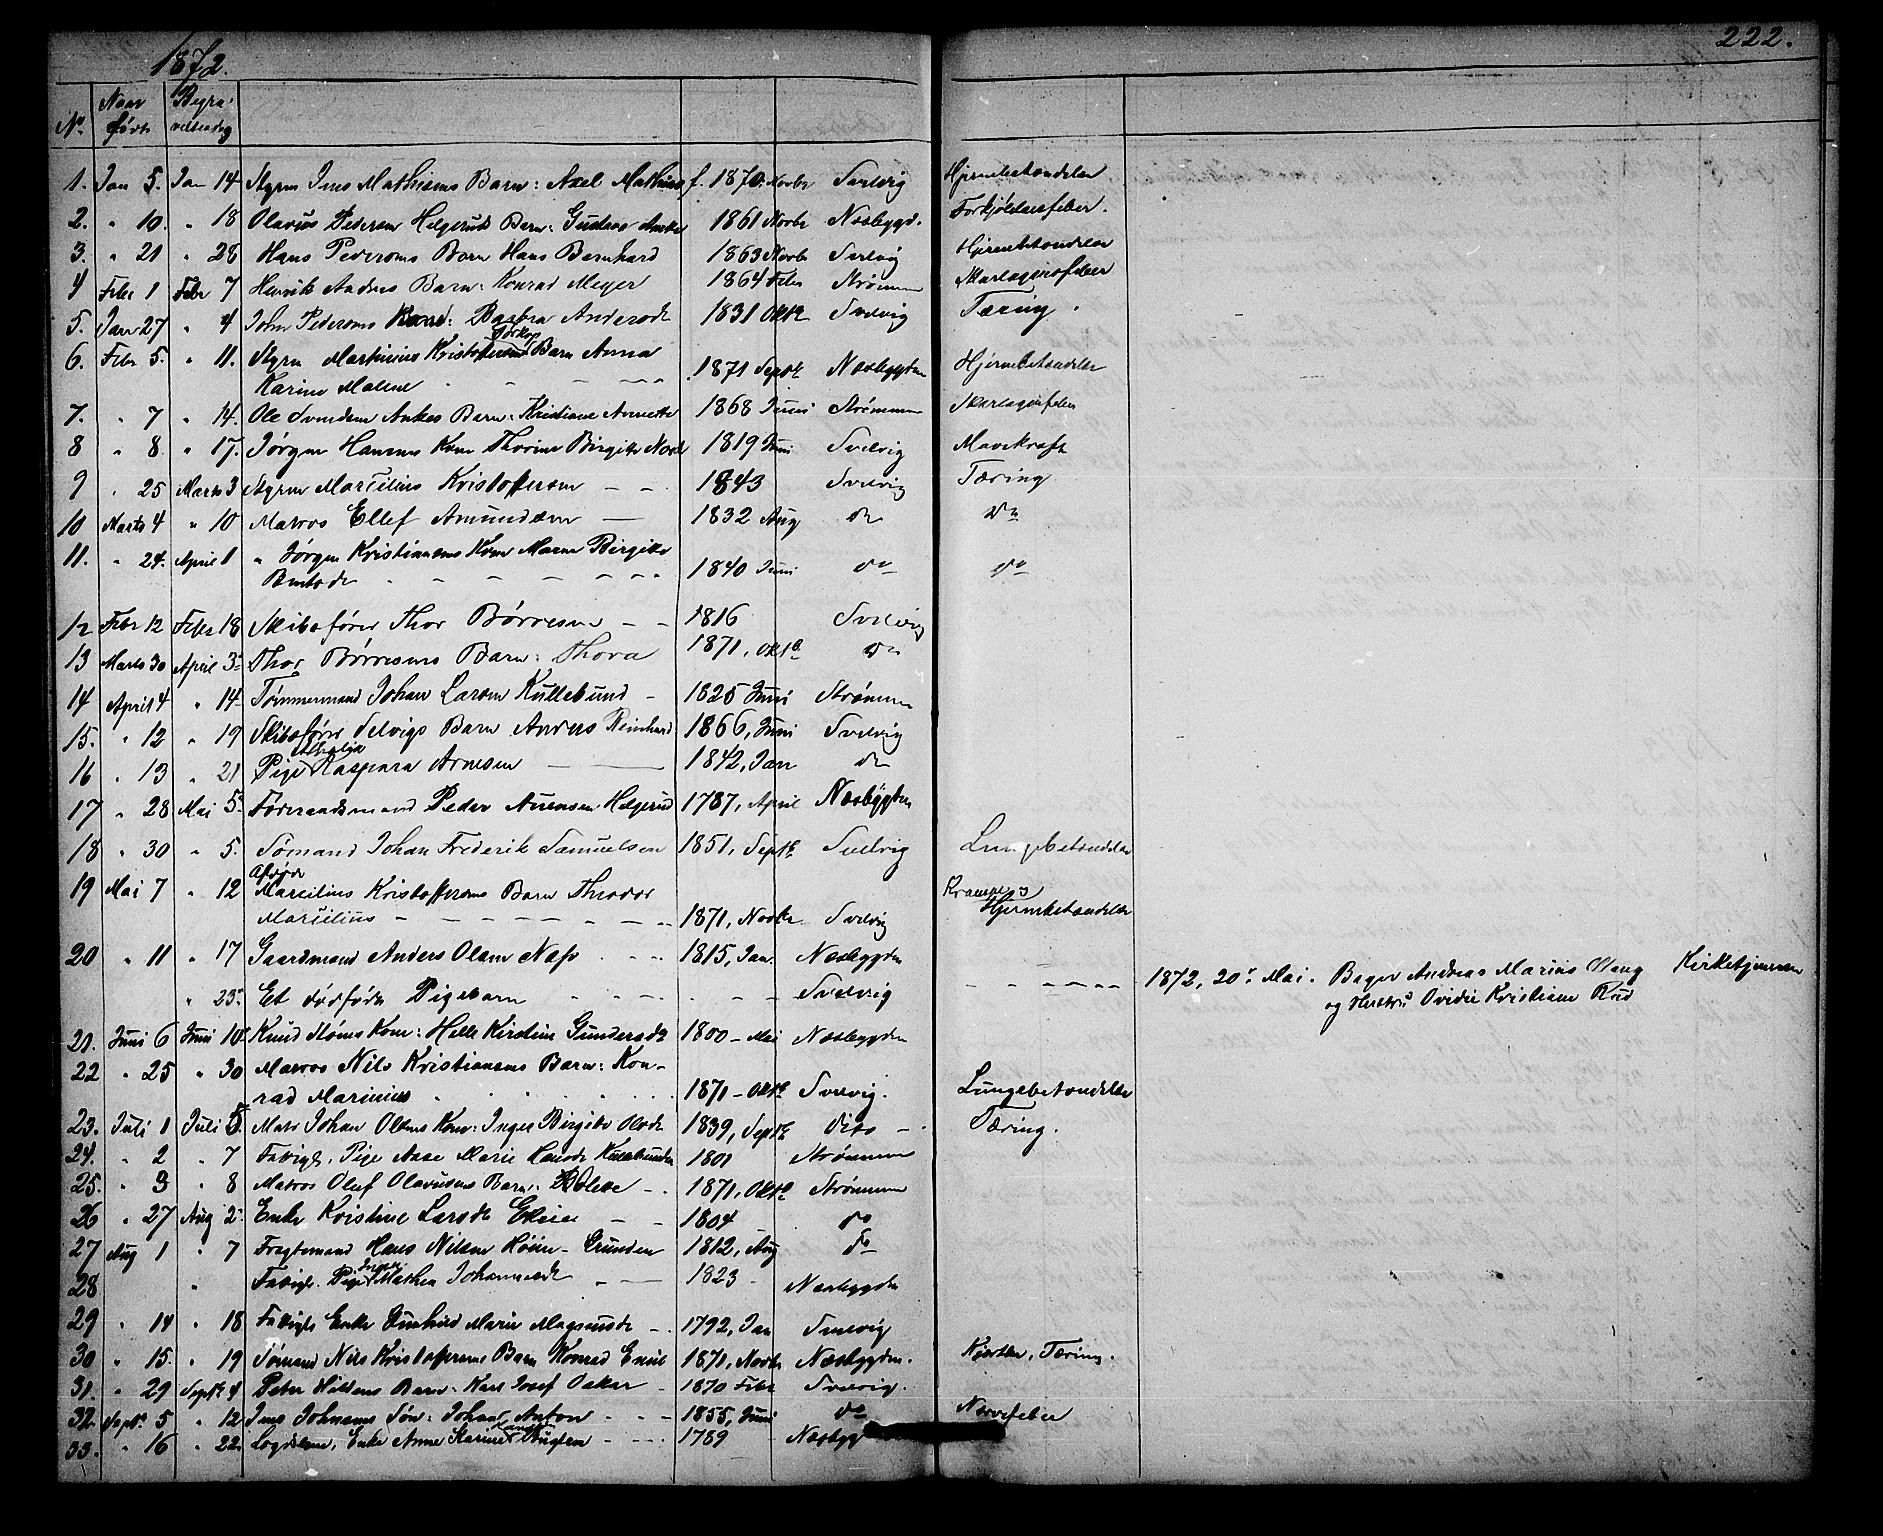 1872.
222.
No Naar født Begravelsesdag
1. Jan 5. Jan 14 Styrm Jens Mathisens Barn: Axel Mathias f. 1870. Novbr Svelvig Hjernebetændelse
2. " 10. " 18 Olavus Pedersen Helgerud Barn: Gustav 1861 Novbr Næsbygd. Forkjølelsesfeber.
3. " 21 " 28 Hans Pedersens Barn Hans Bernhard 1863 Novbr Svelvig Hjernebetændelse
4 Febr 1 Febr 7 Henrik Barn: Konrad Meyer 1864 Febr Strømmen Skarlagensfeber
5. Jan 27 " 4 John Pedersens Kone: Barbra Andersdt 1831 Oktb Svelvig Tæring.
6. Febr 5. " 11. Styrm Martinius Kristoffersens Barn Anna
Karine Malene 1871 Septb Næsbygden Hjernebetændelse
7. " 7 " 14. Ole Svendsen Barn: Kristiane Annette 1868 Juni Strømmen Skarlagensfeber
8 " 8 " 17. Jørgen Hansens Kone Thorine Birgitte 1819 Juni Svelvig Mavekræft
9 " 25 Marts 3 Styrm Marcilius Kristoffersen - - 1843 Svelvig Tæring
10 Marts 4 " 10 Matros Ellef Amundsen - 1832 Aug do do
11. " 24. April 1 " Jørgen Kristiansens Kone Maren Birgitte
1840 Juni do do
12 Febr 12 Febr 18 Skibsfører Thor Børresen - - 1816 Svelvig
13 Marts 30 April 3 Thor Børresens Barn: Thora 1871, Oktb do
14 April 4 " 14 Tømmermand Johan Larsen Kullebund - 1825 Juni Strømmen
15. " 12 " 19 Skibsfører Selvigs Barn Anders Reinhard 1866, Juni Svelvig
16 " 13 " 21 Pige Athalia Kaspara Arnesen - 1842, Jan do
17 " 28 Mai 5. Føderaadsmand Peder Helgerud 1787, April Næsbygden
18 " 30 " 5. Sømand Johan Frederik Samuelsen 1851, Septb Svelvig Lungebetændelse
19 Mai 7 " 12 Afdøde Marcilius Kristoffersens Barn Theodor
Marcilius - - - 1871, Novbr Svelvig Krampe og Hjernebetændelse
20 " 11 " 17 Gaardmand Anders Olsen Næss 1815, Jan. Næsbygden
" 23 Et dødfødt Pigebarn - - - Svelvig - - - 1872, 20. Mai. Bager Andreas Marius Stang Kirketjeneren
og Hustru Ovidie Kristiane Rud
21. Juni 6 Juni 10 Knud Støms Kone: Helle Kirstine Gundersdt 1800 - Mai Næsbygden
22 " 25 " 30 Matros Nils Kristiansens Barn: Kon-
rad Marinius 1871 - Oktb Svelvig. Lungebetændelse
23. Juli 1 Juli 5 Matr Johan Olsens Kone: Inger Birgitte Olsdt 1839, Septb dito - Tæring.
24. " 2 " 7 Fattigl. Pige Anne Marie Hansdt 1801 Strømmen
25. " 3 " 8 Matros Oluf Olavusens Barn: Bolette - 1871, Oktb Strømmen
26 " 27 Aug 2 Enke Kristine Larsdt - - 1804 do
27 Aug 1 " 7 Fragtemand Hans Nilsen Høien-Grunden 1812, Aug do
28 " Fattigl. Pige Inger Mathea Johannesdt - - 1823 - Næsbygden
29 " 14 " 18 Fattigl Enke Gunhild Marie Magnusdt - 1792, Jan Svelvig
30 " 15. " 19 Sømand Nils Kristoffersens Barn Konrad Emil 1871, Novbr Næsbygden. Tæring.
31. " 29 Septb 4 Peter Hildens Barn: Karl Josef Oskar - 1870 Febr Svelvig.
32. Septb. 5 " 12 Jens Johnsens Søn: Johan Anton - - - 1855, Juni do Nervefeber
33. " 16 " 22 Enke Anne Karine - - - 1789 Næsbyg